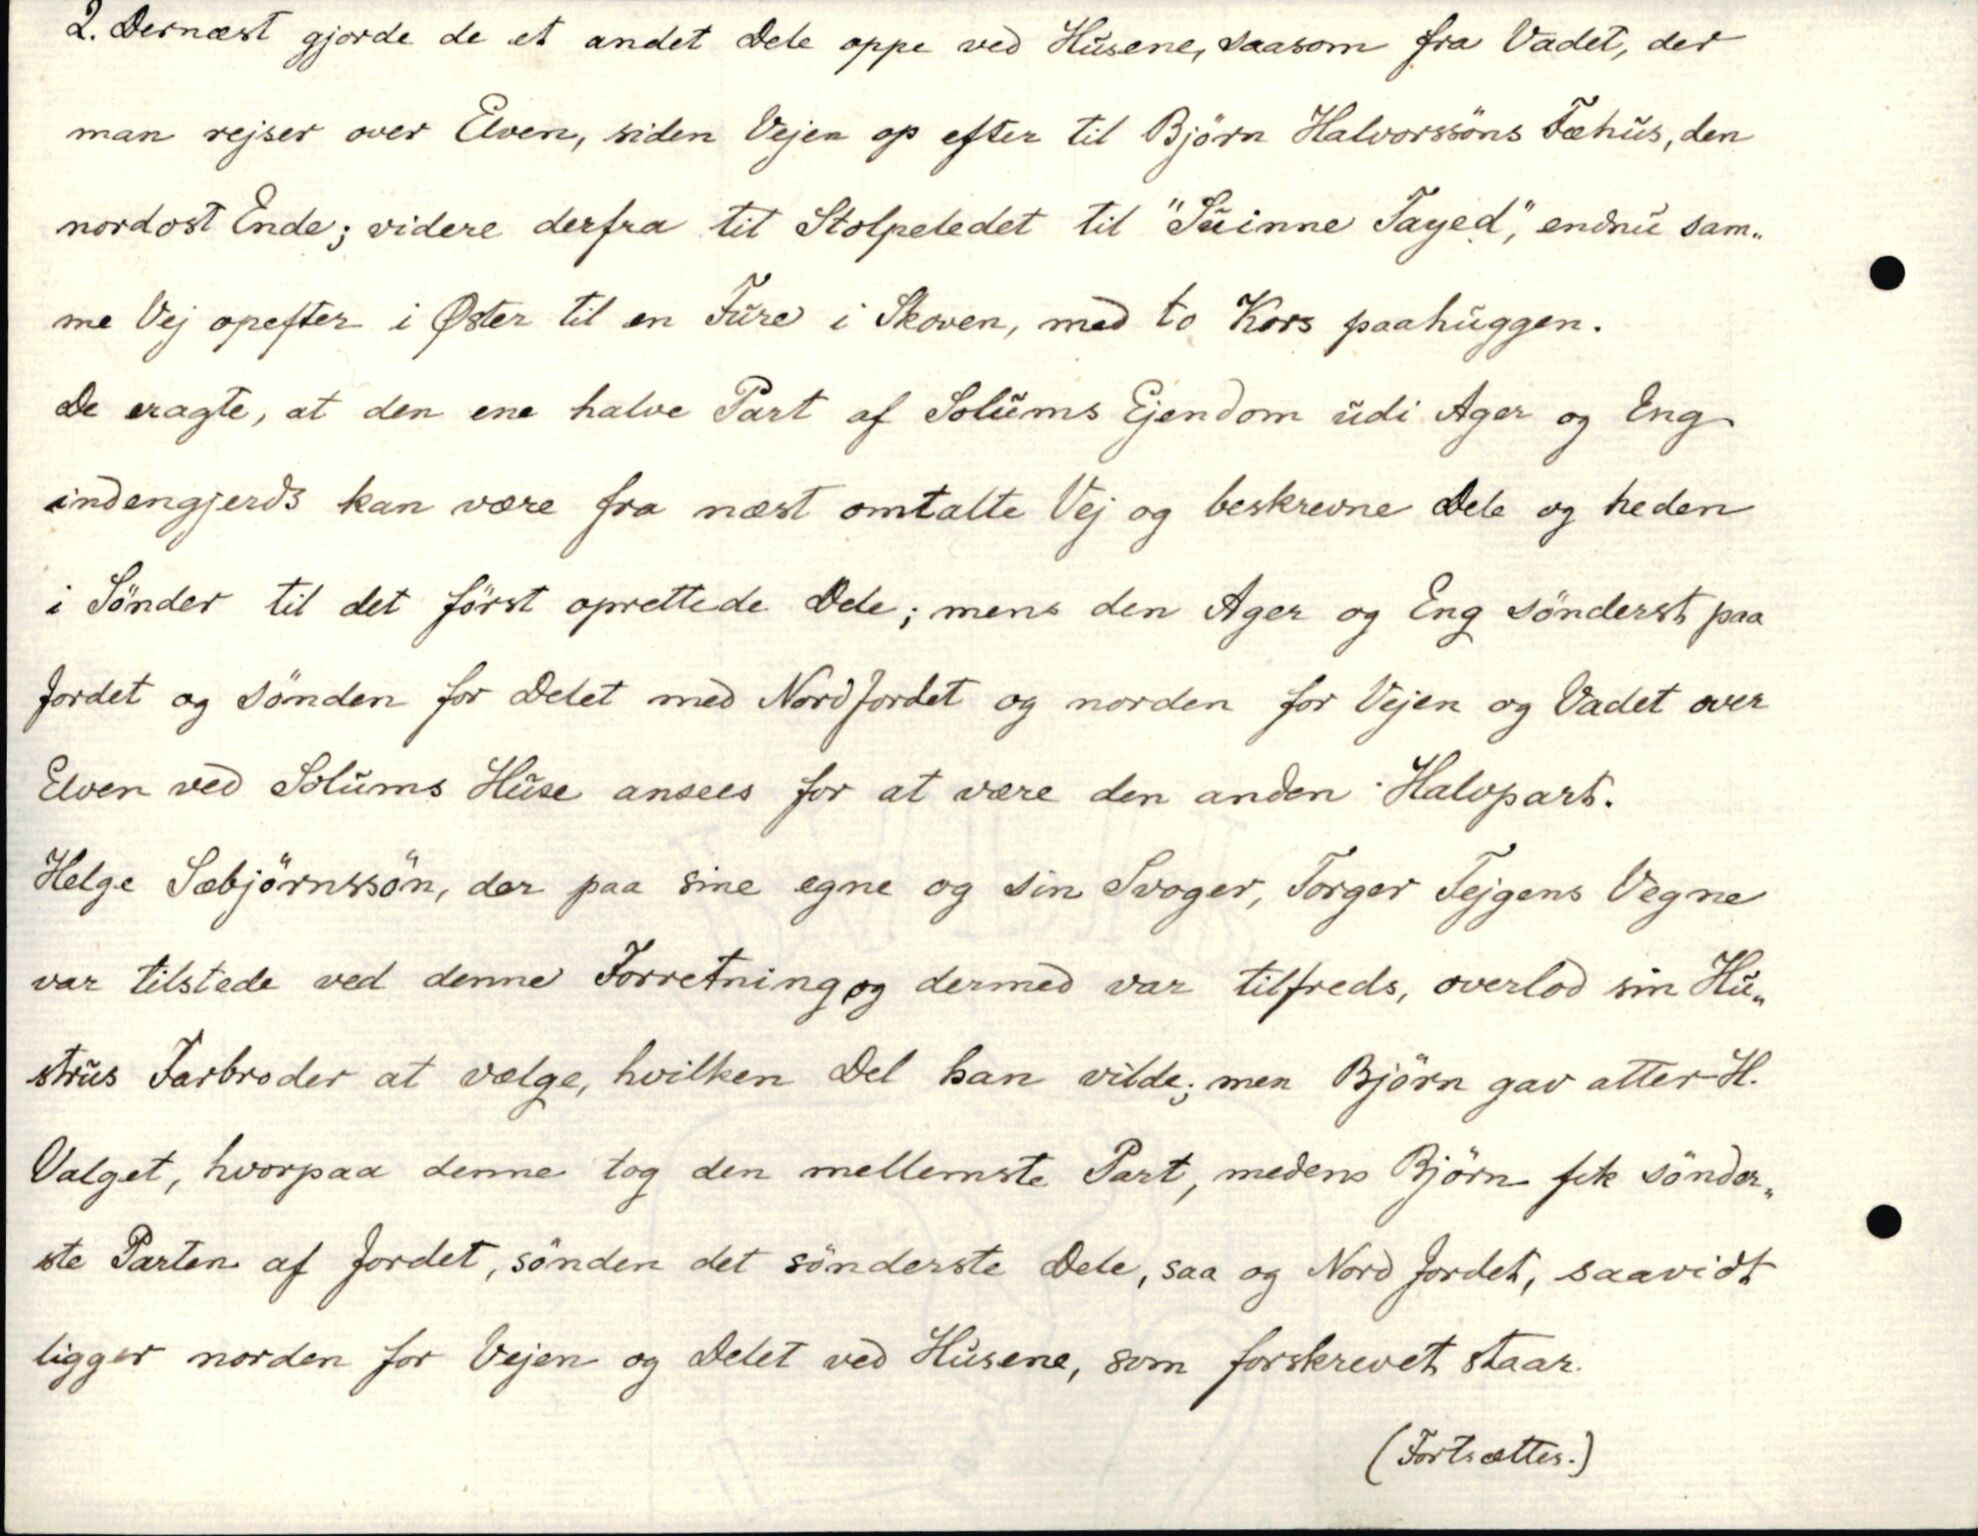 2. Dernæst gjorde de et andet Dele oppe ved Husene, saasom fra Vadet, der
man rejser over Elven, siden Vejen op efter til Björn Halvorssöns Fæhus, den
nordost Ende; videre derfra til Stolpeledet til "Suinne Tayed", endnu sam„
me Vej opefter i Øster til en Fure i Skoven, med to Kors paahuggen.
De eragte, at den ene halve Part af Solums Ejendom udi Ager og Eng
indengjerds kan være fra næst omtalte Vej og beskrevne Dele og heden
i Sönder til det först oprettede Dele; mens den Ager og Eng sönderst paa
Jordet og sönden for Delet med Nord Jordet og norden for Vejen og Vadet over
Elven ved Solums Huse ansees for at være den anden Halvpart.
Helge Sæbjörnssön, der paa sine egne og sin Svoger, Torger Tejgens Vegne
var tilstede ved denne Forretning og dermed var tilfreds, overlod sin Hu„
strus Farbroder at vælge, hvilken Del han vilde; men Björn gav atter H.
Valget, hvorpaa denne tog den mellemste Part, medens Björn fik sönder„
ste Parten af Jordet, sönden det sönderste Dele, saa og Nord Jordet, saavidt
ligger norden for Vejen og Delet ved Husene, som forskrevet staar.
(Fortsættes.)